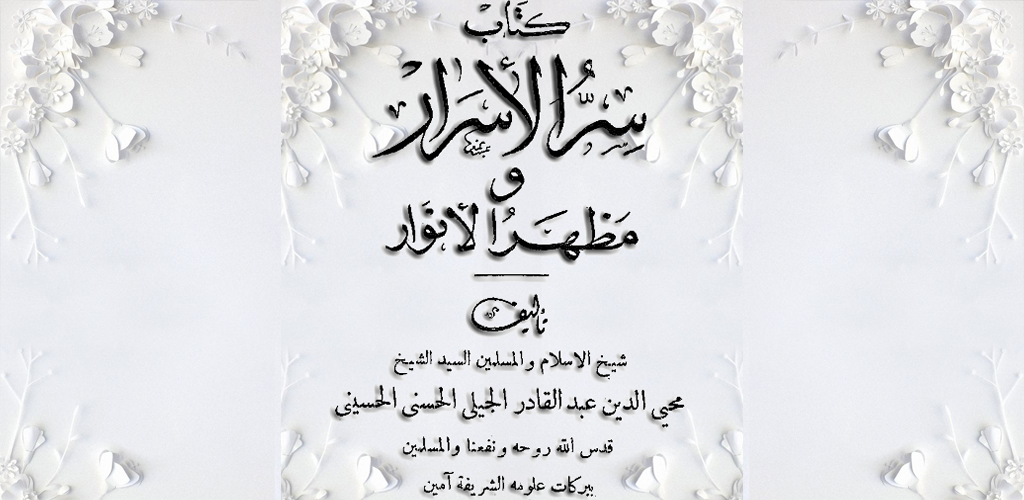 كتاب
سِرُّ الأسرَار
و
مَظهَرُ الأنوَار
تأليف
شيخ الاسلام والمسلمين السيد الشيخ
محيي الدين عبد القادر الجيلى الحسنى الحسينى
قدس الله روحه ونفعنا والمسلمين
ببركات علومه الشريفة آمين